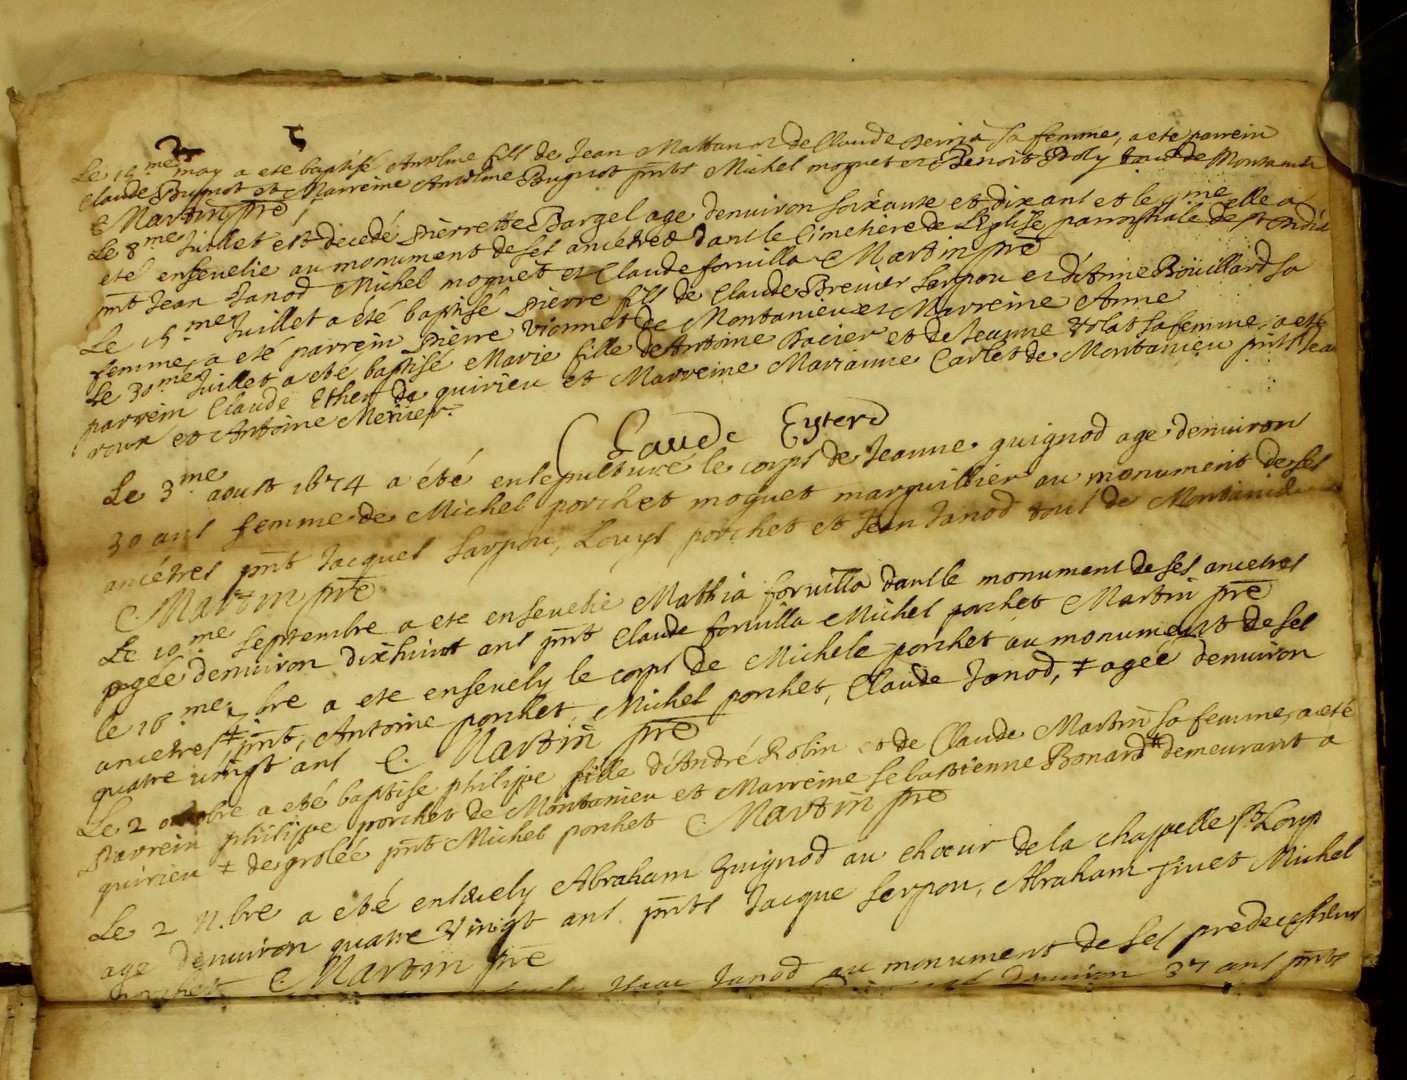 5
Le 15.me may a ete baptisé Anselme fils de Jean Mattan et de Claude sa femme, a ete parrein
Claude Bugnot et Marreine Anselme Bugnot pnts Michel moquet et Benoit Boly tous de Montanieu
C Martin pre
Le 8.me Juillet est decedé pierrette Bargel age denuiron soixante et dix ans et le 9.me elle a
eté enseuelie au monument de ses ancètres dans le Cimetière de L'Eglise parrochiale de st André
pnt Jean Janod Michel moquet et Claude foruilla C Martin pre
Le 15.me Juillet a été baptisé pierre fils de Claude Breuier Sarpou et d'Anne Boüillard sa
femme, a eté parrein pierre vionnet de Montanieu et Marreine Anne
Le 30.me Juillet a eté baptisé Marie fille de Antoine Bacier et de Jeanne Volat sa femme, a eté
parrein Claude Ether de quirieu et Marreine Marianne Carlet de Montanieu pnts Jean
roux et Antoine Mercier.
Claude Eyterd
Le 3.me aoust 1674 a été ensepulturé le corps de Jeanne guignod age denuiron
30 ans femme de Michel porchet moquet marguillier au monument de ses
ancétres pnt Jacques Sarpou, Louys porchet et Jean Janod tous de Montanieu
C. Martin pre
Le 10.me septembre a ete enseuelie Mathia foruilla dans le monument de ses ancetres
agée denuiron dixhuit ans pnt Claude foruilla Michel porchet Martin pre
le 16.me 7.bre a ete enseuely le corps de Michele porchet au monument de ses
ancetres ‡ pnt, Antoine porchet, Michel porchet, Claude Janod, ‡ agée denuiron
quatre uingt ans C. Martin pre
Le 2 octobre a eté baptisé philippe fille d'André Robin et de Claude Martin sa femme, a eté
Parrein philippe porchet de Montanieu et Marreine Sebastienne Bonard ‡ demeurant a
quirieu ‡ de grolée pnt Michel porchet C. Martin pre
Le 2 N.bre a eté enseuely Abraham guignod au choeur de la chappelle st Loup
age denuiron quatre vingt ans pnts Jacque Serpou, Abraham Jiuet Michel
porchet C Martin pre
Isaac Janod au monument de ses predecesseurs
denuiron 37 ans pnts